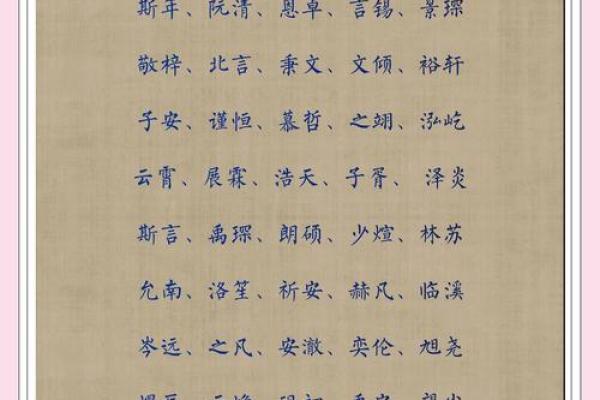 斯年、阮清、恩卓、言锡、景琛
敬梓、北言、秉文、文倾、裕轩
子安、谨恒、慕哲、之翊、泓屹
云霄、展霖、浩天、子胥、泽炎
斯言、禹琛、朗硕、少煊、林苏
允南、洛笙、祈安、赫凡、临溪
岑远、之凡、安澈、奕伦、旭尧